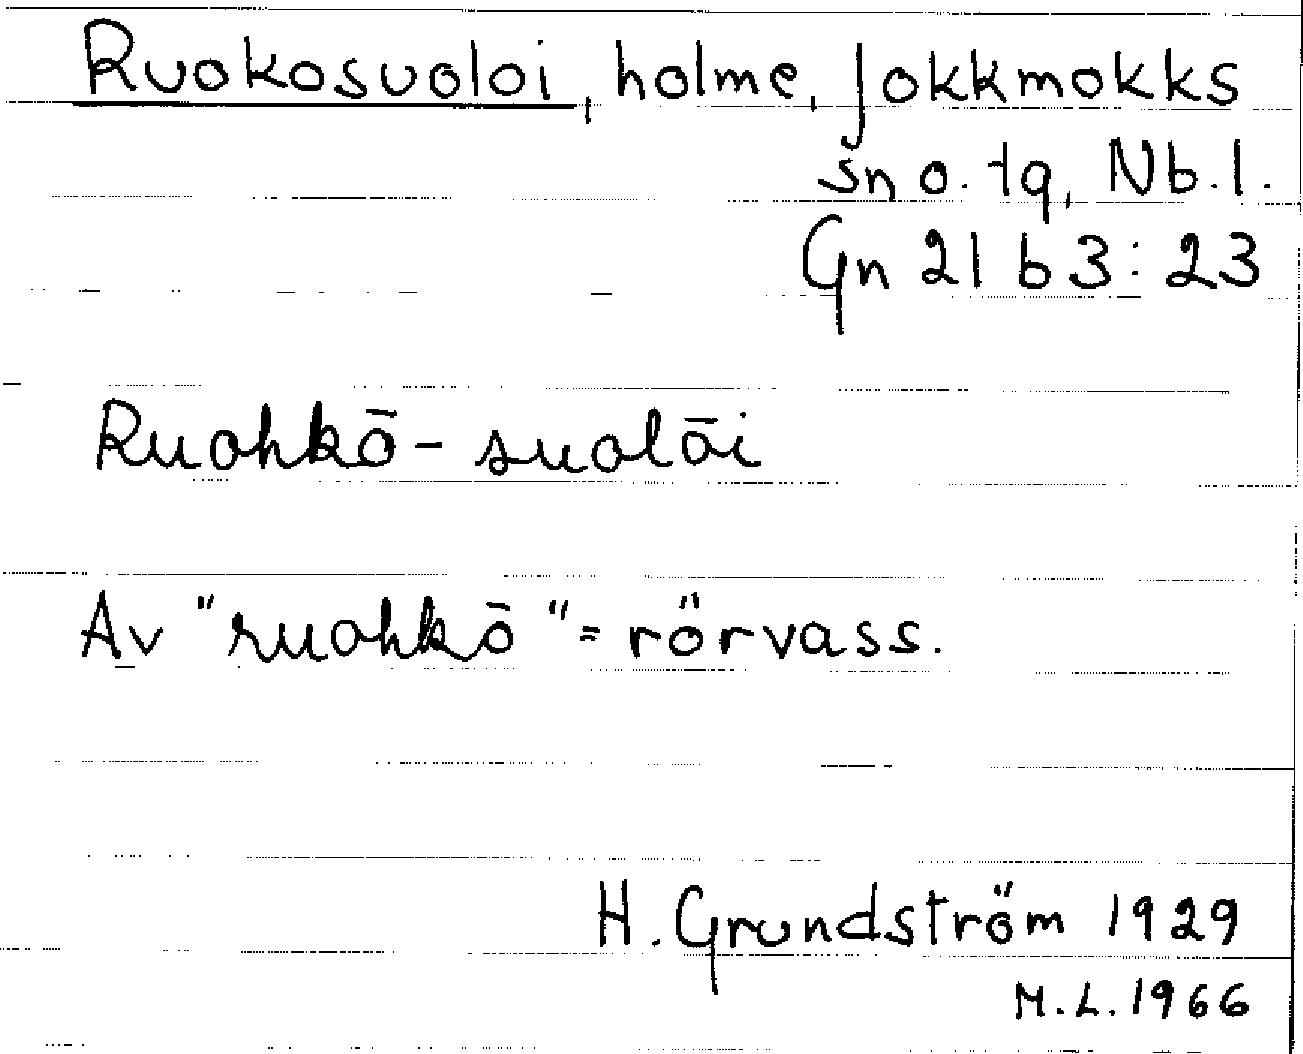 Ruokosuoloi, holme, Jokkmokks
sn o. tg, Nb. l.
Gn 21 b 3:23
Ruohkō-suolāi
Av "ruohkō" = rörvass.
H. Grundström 1929
M.L. 1966